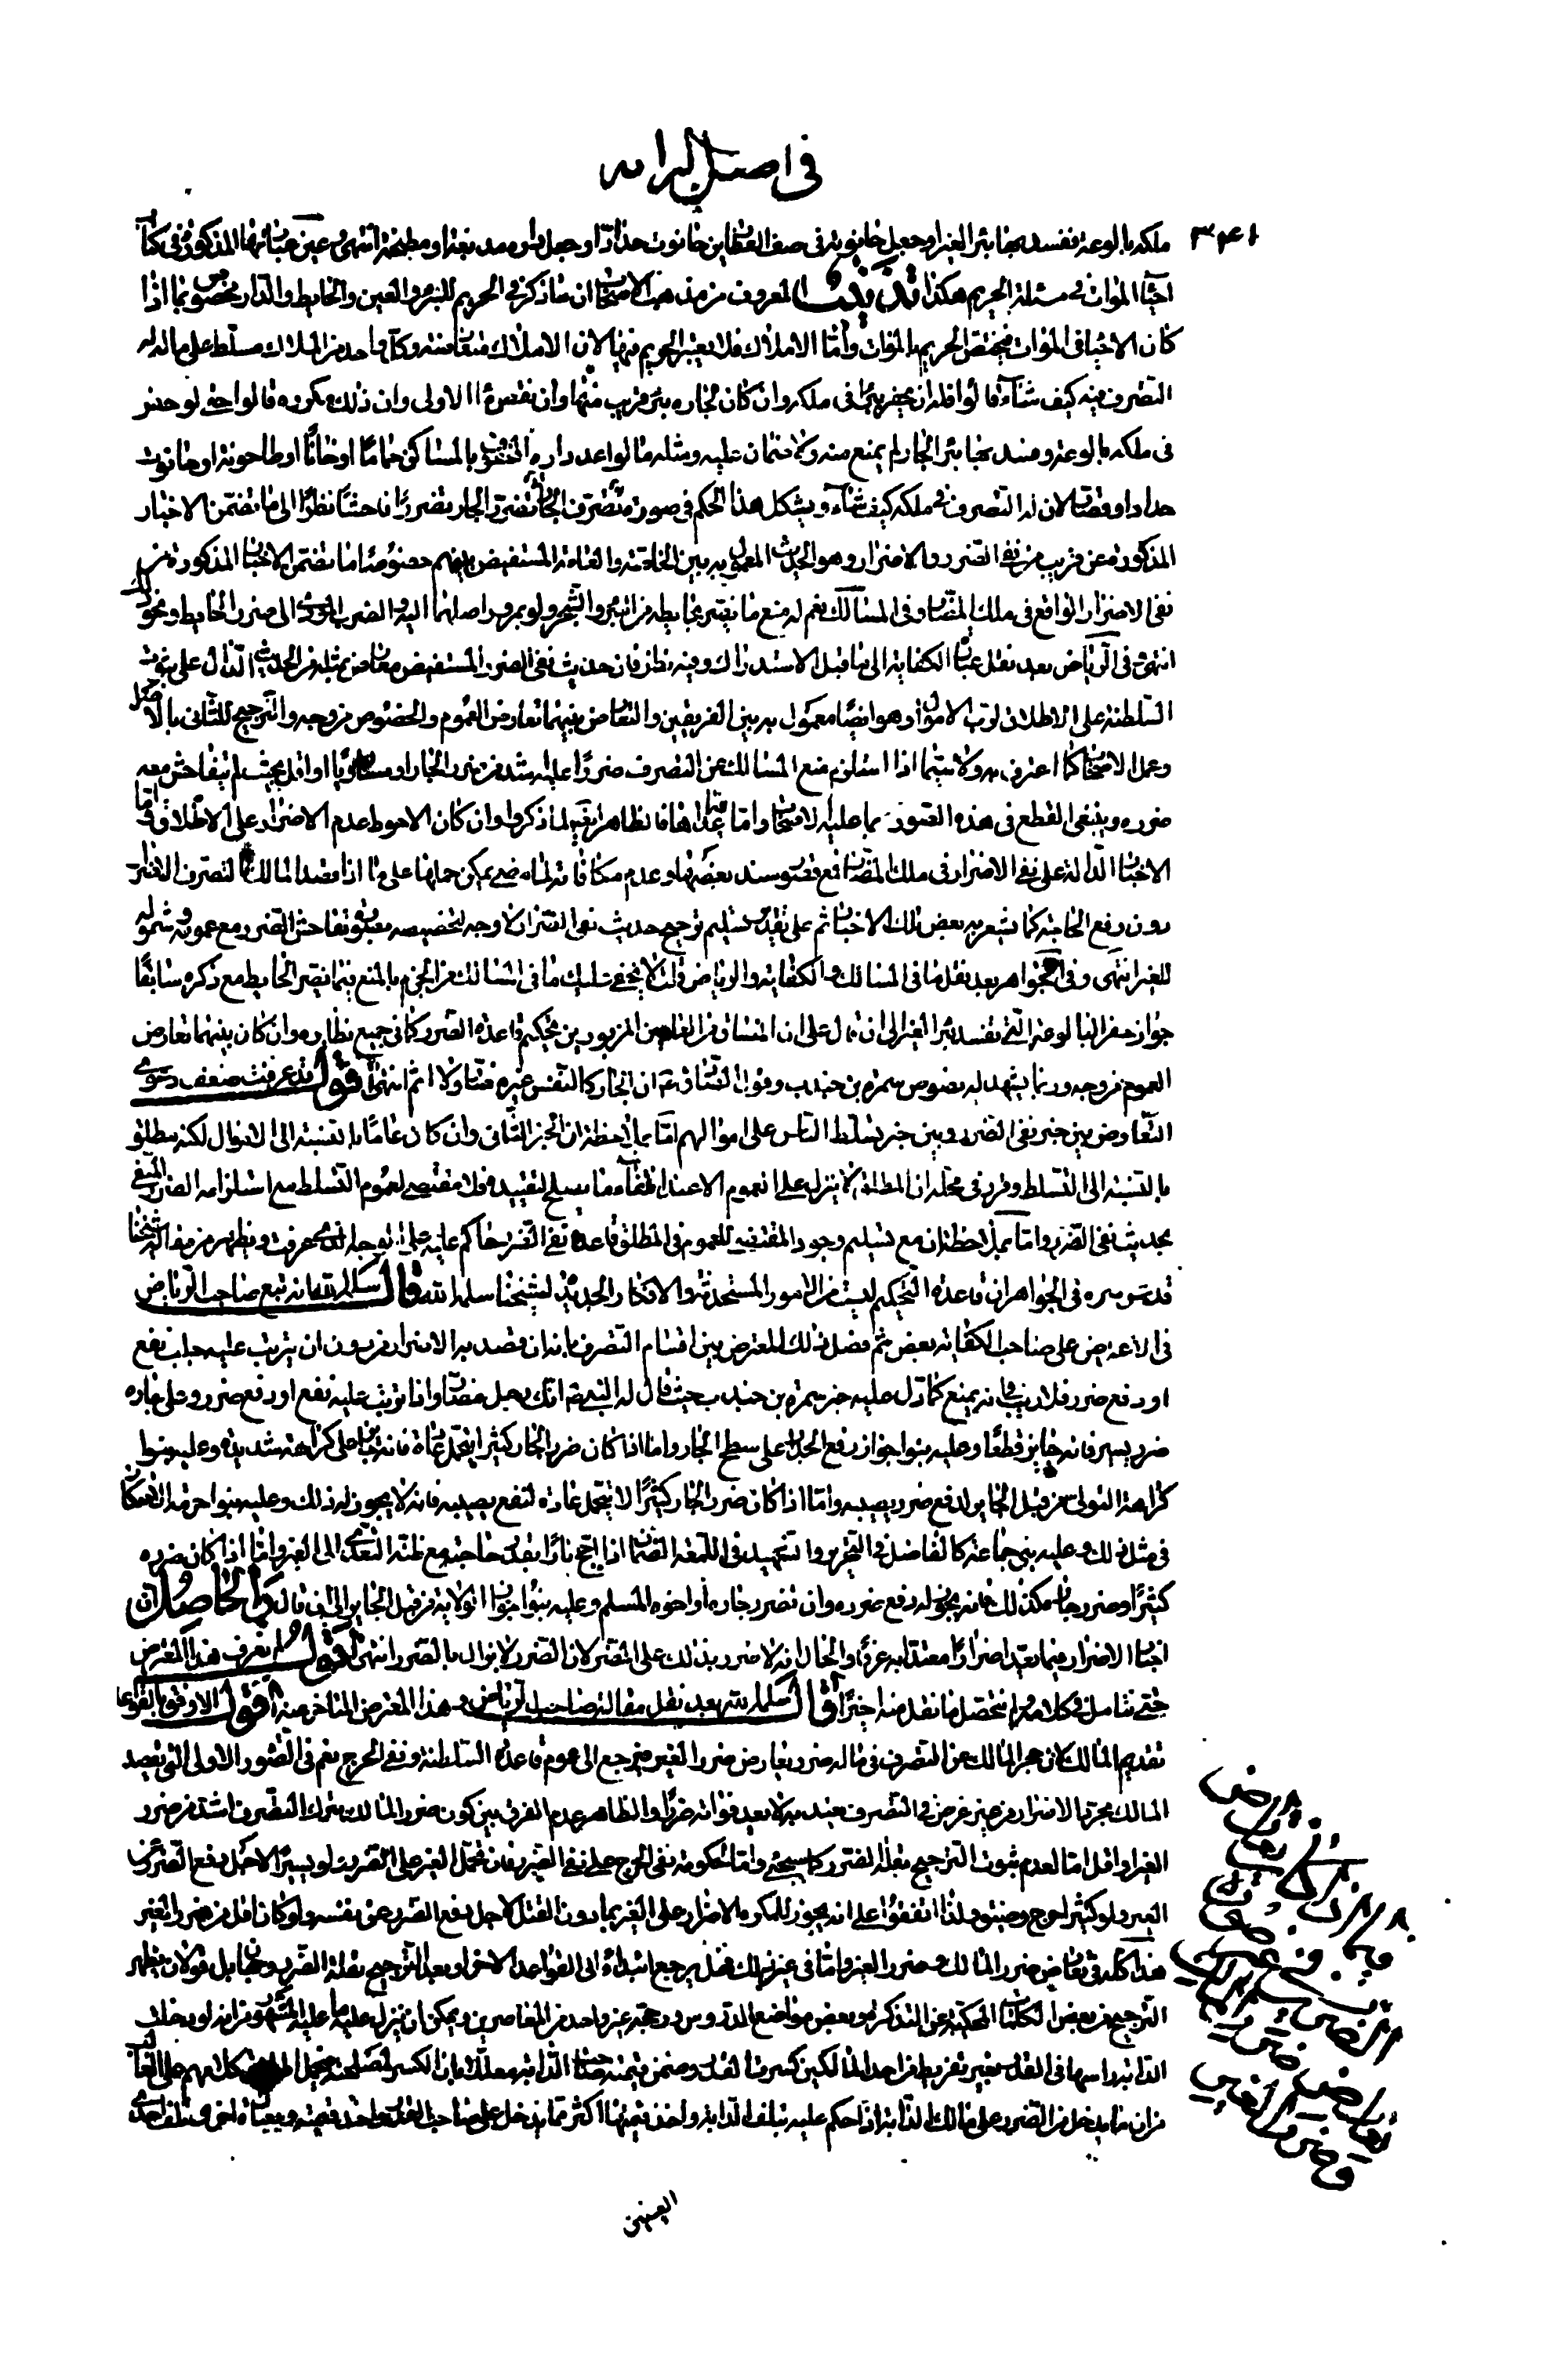 في اصل البرائه
٣٤٨
ملكه بالوعة ففسد بها بئر الغير او جعل حانوته في صف العطارين حانوت حداد او جعل داره مدبغة او مطبخة انتهى عين عباراتها المذكورة في كتاب
احياء الموات في مسئلة الحريم هكذا تذنيب المعروف من مذهب الاصحاب ان ما ذكر في الحريم للبئر والعين والحايط والدار مخصوص بما اذا
كان الاحياء في الموات فيختص الحريم بالموات واما الاملاك فلا يعتبر الحريم فيها لان الاملاك متعارضة وكل واحد من الملاك مسلط على ماله له
التصرف فيه كيف شاء قالوا فله ان يحفر بئرا في ملكه وان كان لجاره بئر قريب منها وان نقص ماء الاولى وان ذلك مكروه قالوا حتى لو حفر
في ملكه بالوعة وفسد بها بئر الجار لم يمنع منه ولا ضمان عليه ومثله ما لو اعد داره المحفوف بالمساكن حماما او خانا او طاحونة او حانوت
حداد او قصار لان له التصرف في ملكه كيف شاء ويشكل هذا الحكم في صورة تضرر الجار تضررا فاحشا نظرا الى ما تضمن الاخبار
المذكورة عن قريب من نفي الضرر والاضرار وهو الحديث المعمول به بين الخاصة والعامة المستفيض بينهم خصوصا ما تضمن الاخبار المذكورة من
نفي الاضرار الواقع في ملك المضار وفي المسالك نعم له منع ما يضر بحايطه من البئر والشجر ولو بمرور اصلها اليه والضرب المؤدي الى ضرر الحايط ونحو ذلك
انتهى في الرياض بعد نقل عبارة الكفاية الى ما قبل الاستدراك وفيه نظر فان حديث نفي الضرر المستفيض معارض بمثله من الحديث الدال على ثبوت
السلطنة على الاطلاق لرب الاموال وهو ايضا معمول به بين الفريقين والتعارض بينهما تعارض العموم والخصوص من وجه والترجيح للثاني بالاصل
وعمل الاصحاب كما اعترف به ولا سيما اذا استلزم منع المالك عن التصرف ضررا عليه اشد من ضرر الجار او مساويا او اقل بحيث لم يتفاحش معه
ضرره وينبغي القطع في هذه الصور بما عليه الاصحاب واما فيما عداها فالظاهر ايضا لما ذكروا وان كان الاحوط عدم الاضرار على الاطلاق واما
الاخبار الدالة على نفي الاضرار في ملك المضار فمع قصور سند بعضها وعدم مكافاته لما مضى يمكن حملها على ما اذا قصد المالك بالتصرف الاضرار
دون رفع الحاجة كما يشعر به بعض تلك الاخبار ثم على تقدير تسليم ترجيح حديث نفي الضرر لا وجه لتخصيصه بصورة تفاحش الضرر مع عمومه وشموله
للغير انتهى وفي الجواهر بعد نقل ما في المسالك والكفاية والرياض قلت لا يخفى عليك ما في المسالك من الجزم بالمنع فيما يضر الحايط مع ذكره سابقا
جواز حفر البالوعة التي تفسد بئر الغير الى ان قال على ان المنساق من الخبرين المزبورين تحكيم قاعدة الضرر كما في جميع نظايره وان كان بينهما تعارض
العموم من وجه وربما يشهد له نصوص سمرة بن جندب وقول الصادق ع ان الجار كالنفس غير مضار ولا اثم انتهى اقول قد عرفت ضعف دعوى
التعارض بين خبر نفي الضرر وبين خبر تسلط الناس على اموالهم اما بملاحظة ان الخبر الثاني وان كان عاما بالنسبة الى الاموال لكنه مطلق
بالنسبة الى التسلط وقرر في محله ان المطلق لا ينزل على العموم الا عند انتفاء ما يصلح لتقييده فلا مقتضى لعموم التسلط مع استلزامه الضرر المنفي
بحديث نفي الضرر واما بملاحظة ان مع تسليم وجود المقتضي للعموم في المطلق قاعدة نفي الضرر حاكم عليه على الوجه الذي عرفت ويظهر من مقالة شيخنا
قدس سره في الجواهر ان قاعدة التحكيم ليست من الامور المستحدثة والافكار الجديدة لشيخنا سلمه الله قال سلمه الله انه تبع صاحب الرياض
في الاعتراض على صاحب الكفاية بعض ثم فصل ذلك المعترض بين اقسام التصرف بانه ان قصد به الاضرار من دون ان يترتب عليه جلب نفع
او دفع ضرر فلا ريب في انه يمنع كما دل عليه خبر سمرة بن جندب حيث قال له النبي ص انك رجل مضار واذا ترتب عليه نفع او دفع ضرر وعلى جاره
ضرر يسير فانه جايز قطعا وعليه بنوا جواز رفع الجدار على سطح الجار واما اذا كان ضرر الجار كثيرا يتحمل عادة فانه جايز على كراهة شديدة وعليه بنوا
كراهة التولي من قبل الجاير لدفع ضرر يصيبه واما اذا كان ضرر الجار كثيرا لا يتحمل عادة لنفع يصيبه فانه لا يجوز له ذلك وعليه بنوا حرمة الاحتكار
في مثل ذلك وعليه بنى جماعة كالفاضل في التحرير والشهيد في اللمعة الضمان اذا اجج نارا بقدر حاجته مع ظنه التعدي الى الغير واما اذا كان ضرره
كثيرا وضرر جاره كذلك فانه يجوز له دفع ضرره وان تضرر جاره او اخوه المسلم وعليه بنوا جواز الولاية من قبل الجاير الى ان قال والحاصل ان
اخبار الاضرار فيما يعد اضرارا معتدا به عرفا والحال انه لا ضرر بذلك على المضر لان الضرر لا يزال بالضرر انتهى اقول لم نعرف هذا المعترض
حتى نتامل في كلامه ونتحصل ما نقل منه اخيرا قال سلمه الله بعد نقل مقالة صاحب الرياض وهذا المعترض المتاخر عنه اقول الاوفق بالقواعد
تقديم المالك لان حجر المالك عن التصرف في ماله ضرر يعارض ضرر الغير فيرجع الى عموم قاعدة السلطنة ونفي الحرج نعم في الصور الاولى التي يقصد
المالك مجرد الاضرار من غير غرض في التصرف يعتد به لا يعد فواته ضررا والظاهر عدم الفرق بين كون ضرر المالك بترك التصرف اشد من ضرر
الغير او اقل اما لعدم ثبوت الترجيح بقلة الضرر كما سيجئ واما لحكومة نفي الحرج على نفي الضرر فان تحمل الغير على الضرر ولو يسيرا لاجل دفع الضرر عن
الغير ولو كثيرا حرج وضيق ولذا اتفقوا على انه يجوز للمكره الاضرار على الغير بما دون القتل لاجل دفع الضرر عن نفسه ولو كان اقل من ضرر الغير
هذا كله في تعارض ضرر المالك وضرر الغير واما في غير ذلك فهل يرجع ابتداء الى القواعد الاخر او بعد الترجيح بقلة الضرر وجهان بل قولان يظهر
الترجيح من بعض الكلمات المحكية عن التذكرة وبعض مواضع الدروس ورجحه غير واحد من المعاصرين ويمكن ان ينزل عليه ما عليه المشهور من انه لو ادخلت
الدابة راسها في القدر بغير تفريط من احد المالكين كسر القدر وضمن قيمته صاحب الدابة معللا بان الكسر لمصلحته فيحمل اطلاق كلامهم على الغالب
من ان ما يدخل من الضرر على مالك الدابة اذا حكم عليه بتلف الدابة واخذ قيمتها اكثر مما يدخل على صاحب القدر واخذ قيمته وبعبارة اخرى تلف احدى
العينين